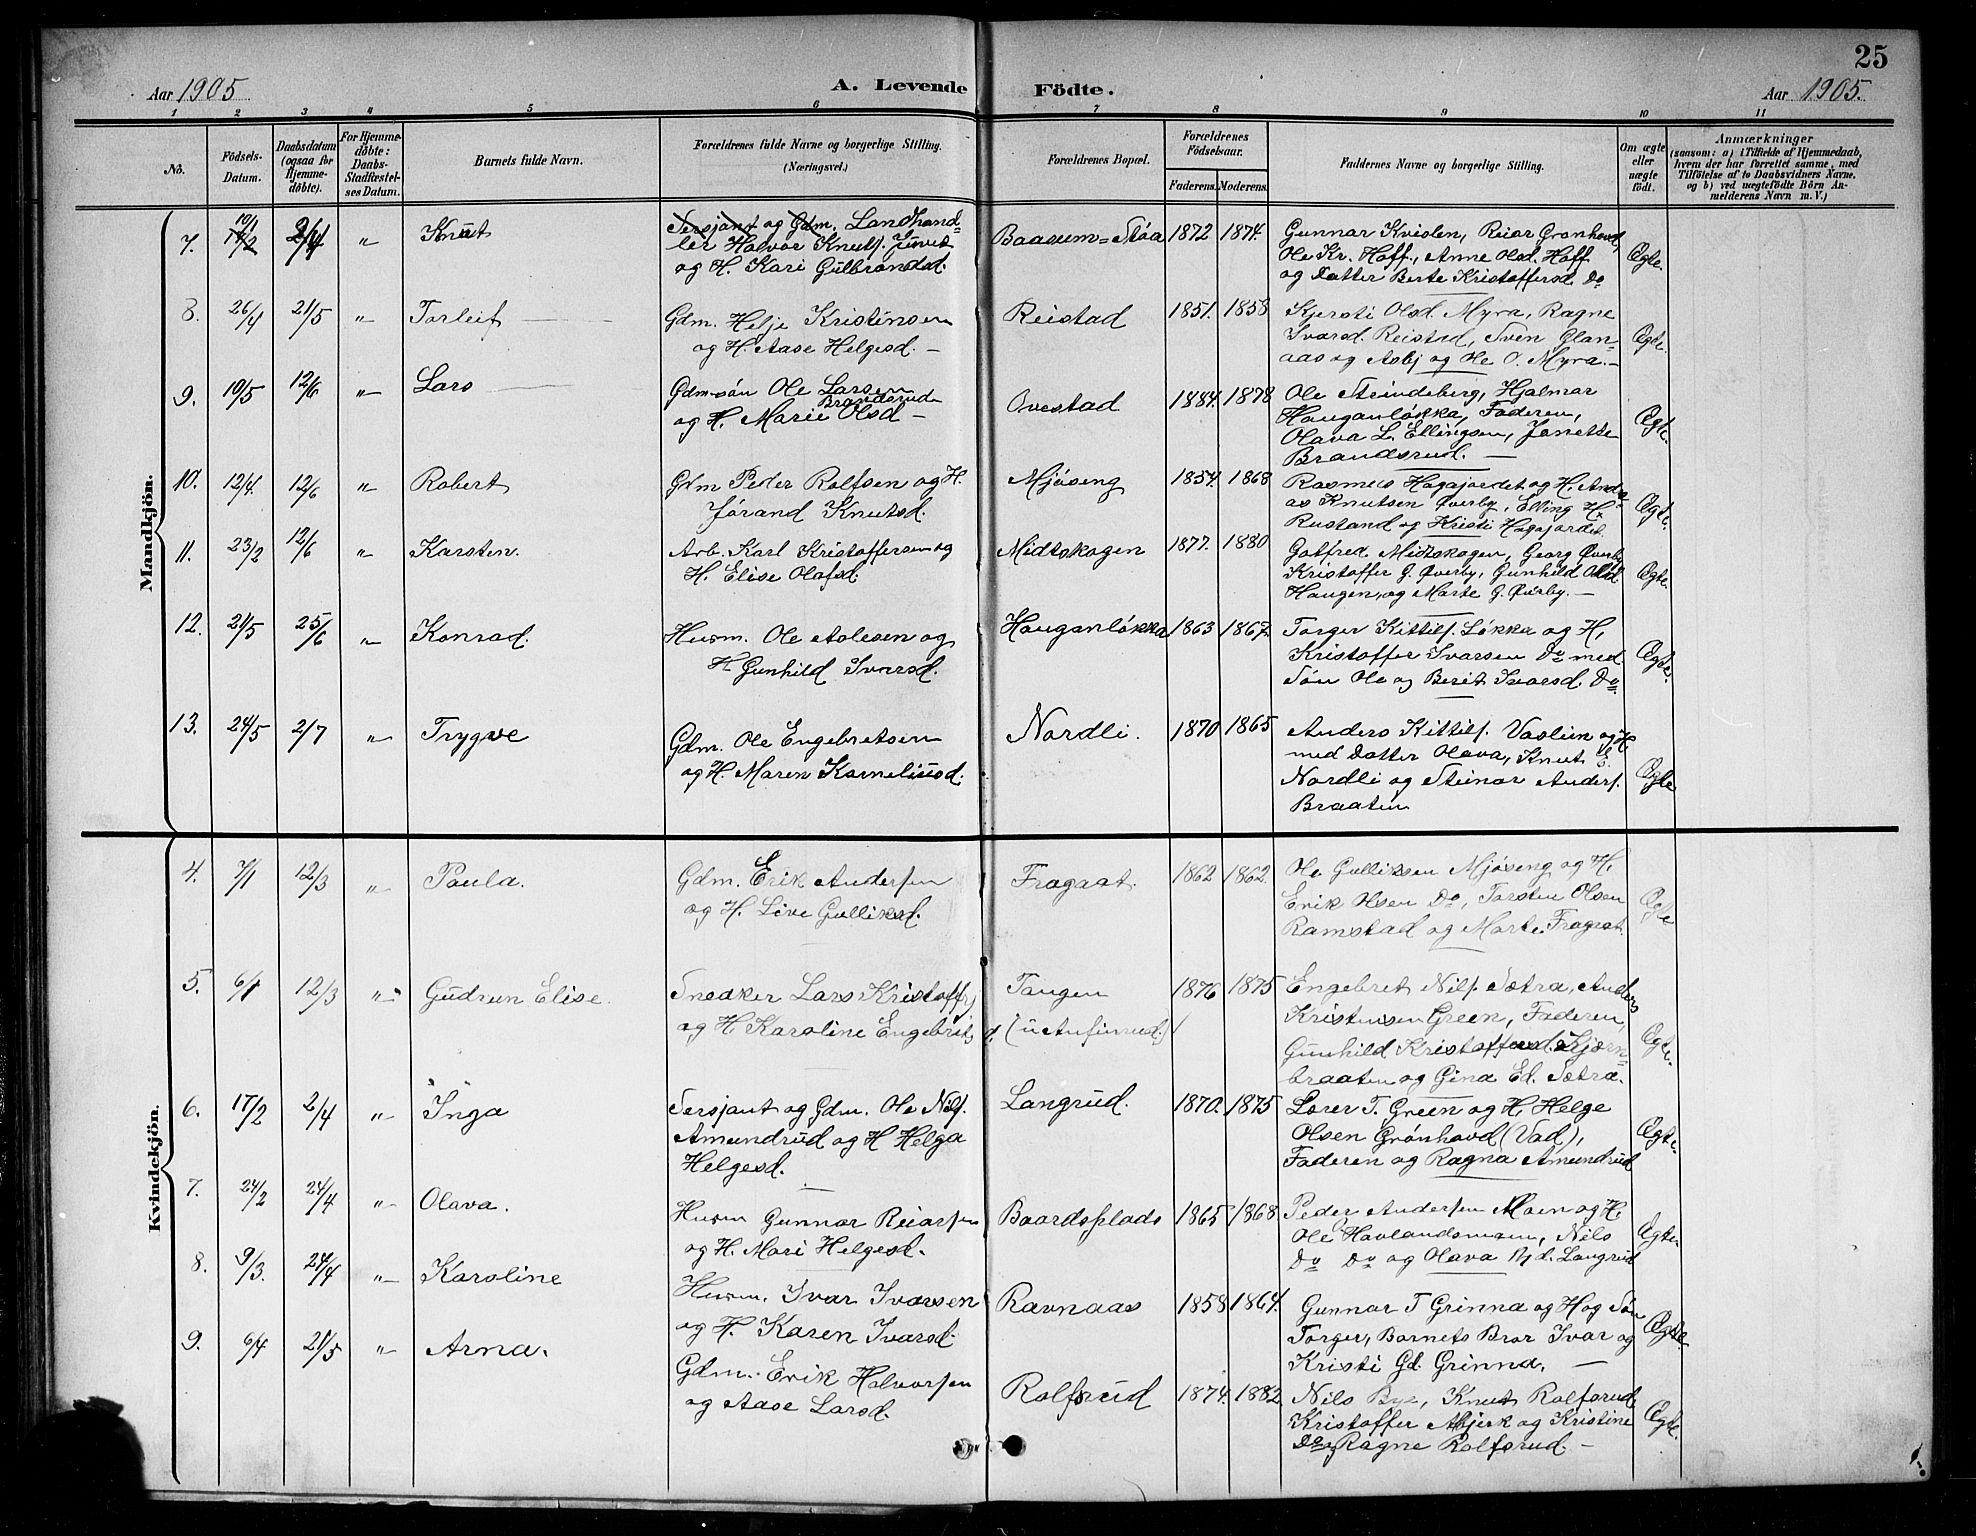 25
Aar 1905 A. Levende Födte. Aar 1905.
1 2 3 4 5 6 7 8 9 10 11
No.
Födsels-
Datum.
Daabsdatum
(ogsaa for
Hjemme-
döbte).
For Hjemme-
döbte:
Daabs-
Stadfæstel-
ses Datum.
Barnets fulde Navn.
Forældrenes fulde Navne og borgerlige Stilling.
(Næringsvei.)
Forældrenes Bopæl.
Forældrenes
Födselsaar.
Faderens. Moderens.
Faddernes Navne og borgerlige Stilling.
Om ægte
eller
uægte
født.
Anmærkninger
(saasom: a) i Tilfælde af Hjemmedaab,
hvem der har forrettet samme, med
Tilföielse af to Daabsvidners Navne,
og b) ved uægtefödte Börn An-
melderens Navn m. V.)
Mandkjön.
7. 10/1 2/4 " Knut
Sersjant og Gdm. Landhand-
ler Halvor Knuts.
og H. Kari Gulbrandsd.
Baasum=Støa 1872 1874.
Gunnar Kvislen, Reiar Grønhovd,
Ole Kr. Hoff, Anne Olsd. Hoff
og Datter Berte Kristoffersd. Do
Ægte.
8. 26/4 21/5 " Torleif
Gdm. Helje Kristensen
og H. Aase Helgesd. -
Reistad 1851. 1858
Kjersti Olsd. Myra, Ragne
Ivarsd. Reistad, Sven Glan-
aas og Asbj og Ole O. Myra. -
Ægte.
9. 10/5 12/6 " Lars
Gdm-søn Ole Larsen
Brandsrud
og H. Marie Olsd -
Ovestad 1884. 1878
Ole Steindeberg, Hjalmar
Hauganløkka, Faderen,
Olava L. Ellingsen, Janette
Brandsrud. -
Ægte.
10. 12/4. 12/6 " Robert
Gdm Peder Rolfsen og H.
Jørand Knutsd.
Mjøseng 1854. 1868
Rasmus Hagajordet og H, And-
as Knutsen Øverby, Elling H.
Rustand og Kristi Hagajordet
Ægte.
11. 23/2 12/6 " Karsten.
Arb. Karl Kristoffersen og
H. Elise Olafsd.
Midtskogen 1877. 1880
Gotfred Midtskogen, Georg Øverby
Kristoffer G. Øverby, Gunhild Olsd
Haugen, og Marte G. Øverby. -
Ægte.
12. 21/5 25/6 " Konrad.
Husm. Ole Aslesen og
H Gunhild Ivarsd.
Hauganløkka 1863 1867.
Torger Kittils. Løkka og H,
Kristoffer Ivarsen Do med
Søn Ole og Berit Ivarsd. Do
Ægte.
13. 24/5 2/7 " Trygve
Gdm. Ole Engebretsen
og H. Maren Korneliusd.
Nordli. 1870 1865
Anders Kittils. Vaslien og H.
med Datter Olava, Knut E.
Nordli og Steinar Anders.
Braaten
Ægte
Kvindekjön.
4. 7/1 12/3 " Paula.
Gdm. Erik Andersen
og H. Live Gulliksd.
Fragaat. 1862 1862.
Ole Gulliksen Mjøseng og H,
Erik Olsen Do, Torsten Olsen
Ramstad og Marte Fragaat.
Ægte
5. 6/1 12/3 " Gudrun Elise.
Snedker Lars Kristoffs
og H Karoline Engebrets
d.
Tangen
(u Anfinrud.) 1876 1875
Engebret Nils. Sætra, Anders
Kristensen Green, Faderen,
Gunhild Kristoffersd. Kjærn-
braaten og Gina Ed. Sætra.
Ægte.
6. 17/2 2/4 " Inga
Sersjant og Gdm. Ole Nils.
Amundrud og H Helga
Helgesd.
Langrud. 1870. 1875
Lorer T. Green og H, Helge
Olsen Grønhovd (Vad),
Faderen og Ragna Amundrud
Ægte.
7. 24/2 24/4 " Olava.
Husm Gunnar Reiarsen
og H. Mari Helgesd.
Baardsplads 1865 1868
Peder Andersen Moen og H,
Ole Havlandsmoen, Nils
Do Do og Olava Nd. Langrud
Ægte.
8. 9/3. 24/4 " Karoline
Husm. Ivar Ivarsen
og H. Karen Ivarsd.
Ravnaas 1858 1864.
Gunnar T Grinna og H og Søn
Torger, Barnets Bror Ivar og
Kristi Gd. Grinna. -
Ægte
9. 6/4 21/5 " Arna.
Gdm. Erik Halvorsen
og Aase Larsd.
Rolfsrud 1874. 1882.
Nils Bye, Knut Rolfsrud,
Kristoffer Mjerk og Kristine
Do og Ragne Rolfsrud. -
Ægte.